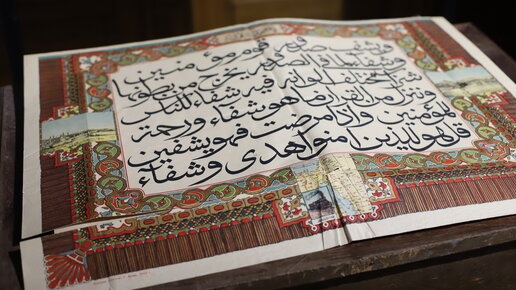 ويشف صدور قوم مؤمنين
وشفاء لما في الصدور يخرج من بطونها
شراب مختلف الوانه فيه شفاء للناس
وننزل من القرآن ما هو شفاء ورحمة
للمؤمنين واذا مرضت فهو يشفين
قل هو للذين آمنوا هدى وشفاء